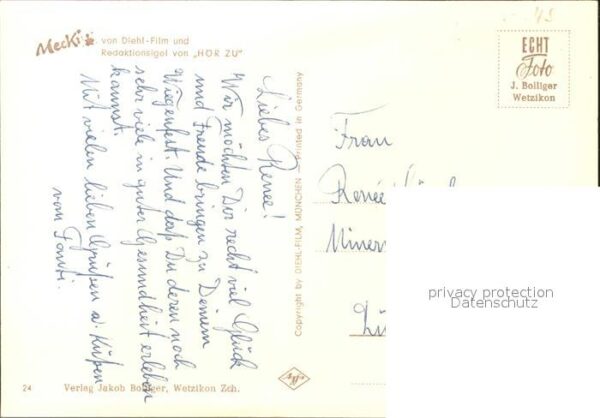 Mecki von Diehl-Film und
Redaktionsigel von „HÖR ZU"
Liebes Renee!
Wir möchten Dir recht viel Glück
und Freude bringen zu Deinem
Wiegenfest. Und daß Du deren noch
sehr viele in guter Gesundheit erleben
kannst.
Mit vielen lieben Grüßen u. Küßen
vom Fanti.
Copyright by DIEHL-FILM, MÜNCHEN — Printed in Germany
ECHT
Foto
J. Bolliger
Wetzikon
Frau
Renée
Miner
privacy protection
Datenschutz
Agfa
24 Verlag Jakob Bolliger, Wetzikon Zch.